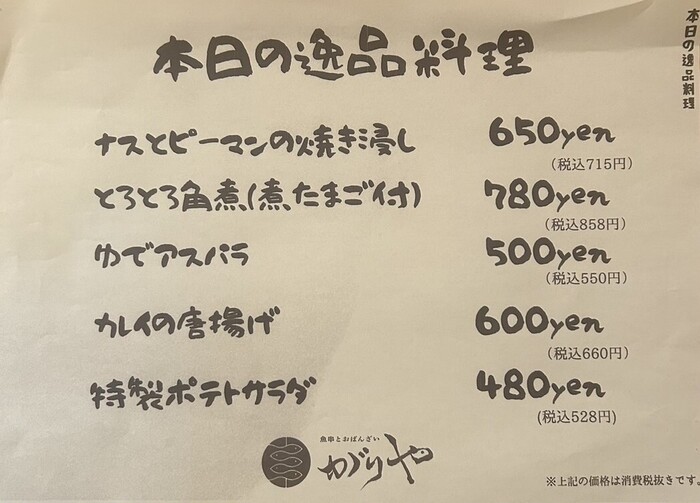 本日の逸品料理
本日の逸品料理
ナスとピーマンの焼き浸し 650yen
(税込715円)
とろとろ角煮(煮たまご付) 780yen
(税込858円)
ゆでアスパラ 500yen
(税込550円)
カレイの唐揚げ 600yen
(税込660円)
特製ポテトサラダ 480yen
(税込528円)
魚串とおばんざい
かがりや
※上記の価格は消費税抜きです